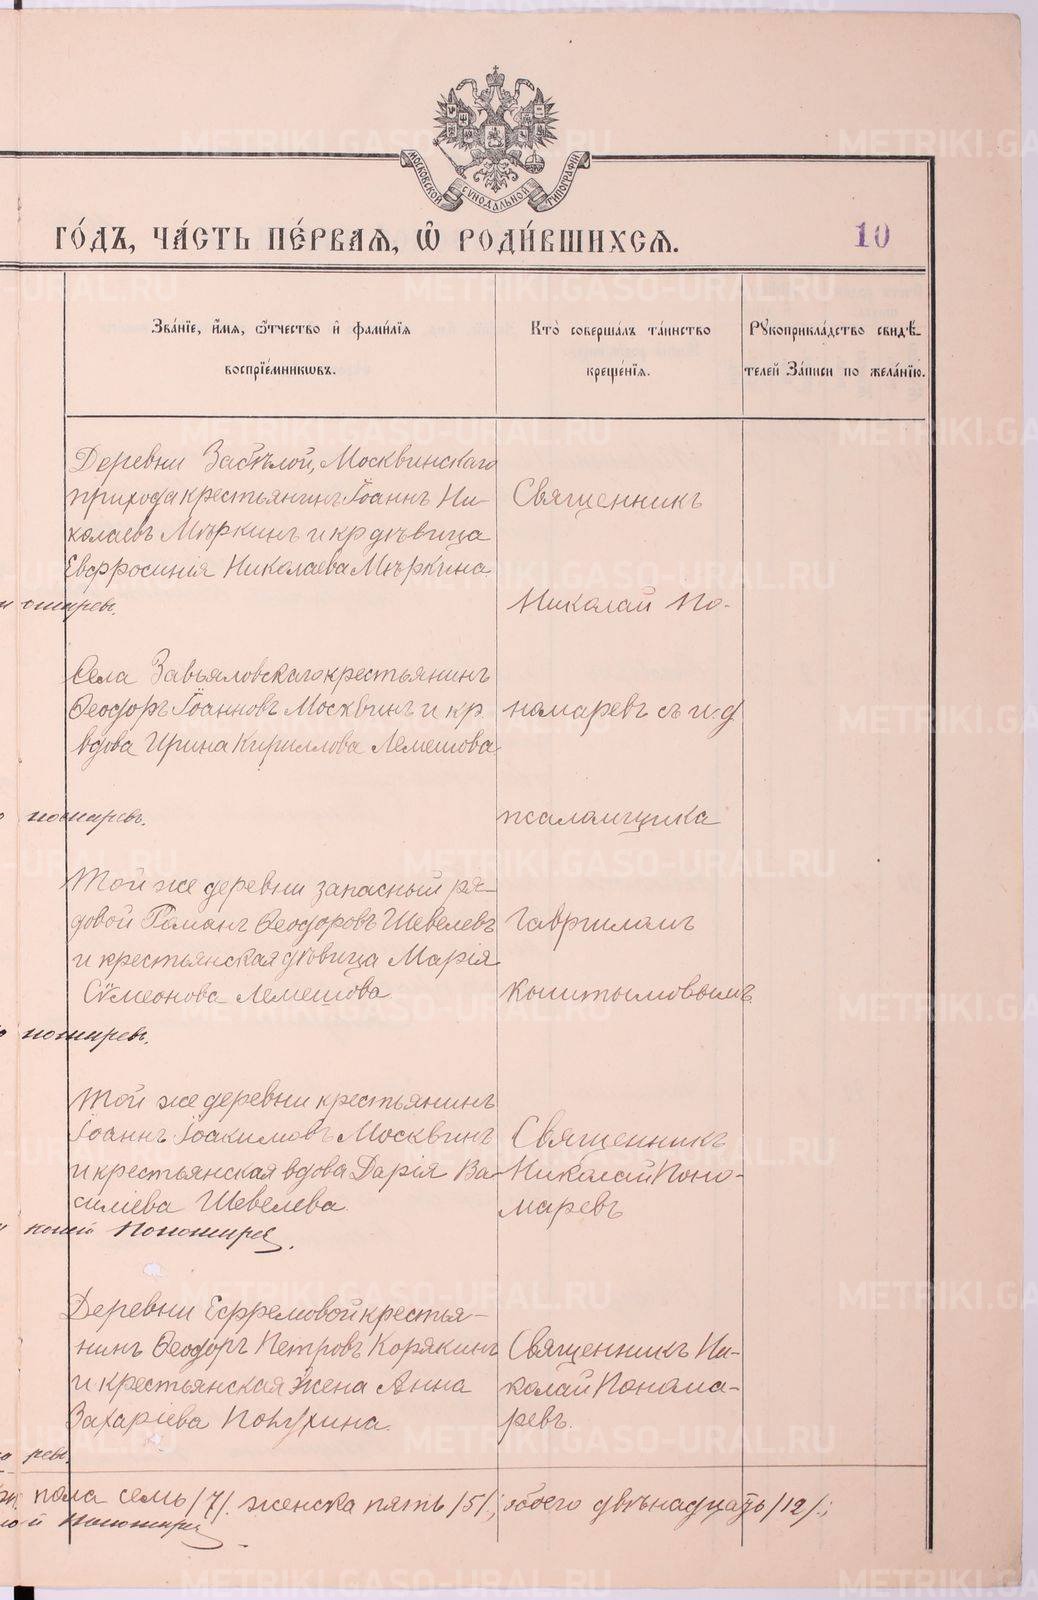 МОСКОВСКОЙ СѴНОДАЛЬНОЙ ТИПОГРАФІИ
ГО́ДЪ, ЧА́СТЬ ПЕ́РВАѦ, Ѡ҆ РОДИ́ВШИХСѦ.
10
Зва́нїе, и҆́мѧ, ѻ҆́тчество и҆ фамилїѧ
воспрїе́мникѡвъ.
Кто̀ соверша́лъ та́инство
креще́нїѧ.
Рꙋкоприкла́дство свидѣ́-
телей За́писи по жела́нїю.
Деревни Забѣлой, Москвинскаго
прихода крестьянинъ Іоаннъ Ни-
колаевъ Мѣркинъ и кр дѣвица
Евфросинія Николаева Мѣркина
Священникъ
Николай По-
Села Завьяловскаго крестьянинъ
Ѳеодоръ Іоанновъ Москвинъ и кр
вдова Ирина Кириллова Лемешова
номаревъ съ и. д
псаломщика
Той же деревни запасный ря-
довой Романъ Ѳеодоровъ Шевелевъ
и крестьянская дѣвица Марія
Сѵмеонова Лемешова
Гавриломъ
Копытымовымъ
номаревъ.
Той же деревни крестьянинъ
Іоаннъ Іоакимовъ Москвинъ
и крестьянская вдова Дарія Ва-
силіева Шевелева.
Священникъ
Николай Поно-
маревъ
Деревни Ефремовой крестья-
нинъ Ѳеодоръ Петровъ Корякинъ
и крестьянская жена Анна
Захаріева
Священникъ Ни-
колай Понома-
ревъ.
ревъ.
пола семь /7/. женска пять /5/.; обоего двѣнадцать /12/.;
METRIKI.GASO-URAL.RU